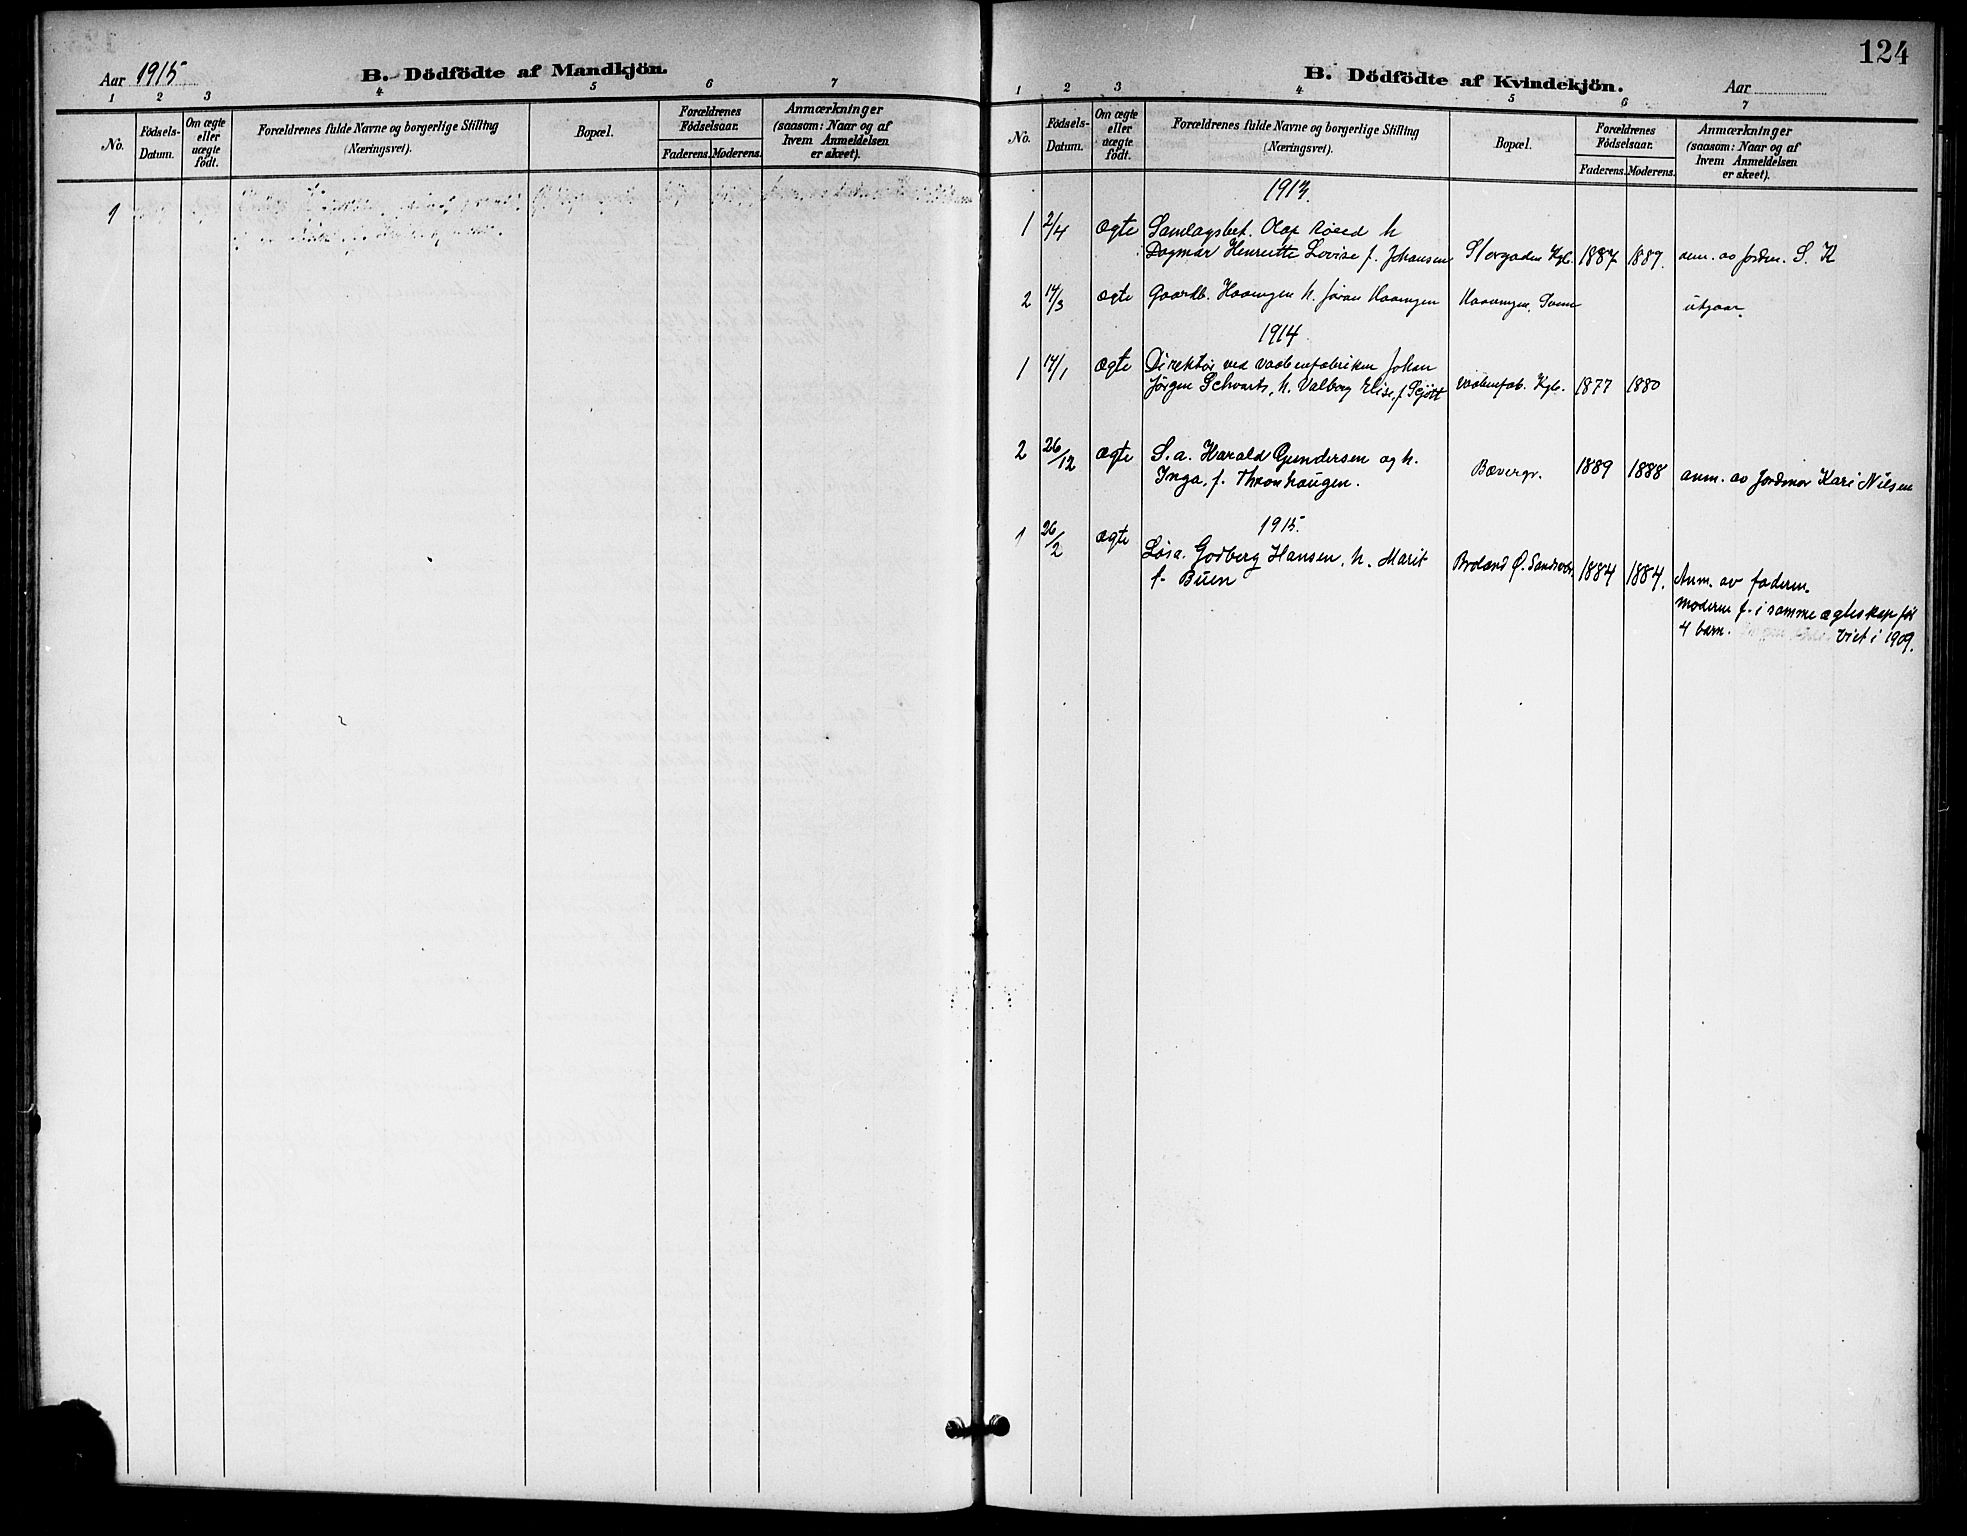 Aar 1915
B. Dödfödte af Mandkjön.
1 2 3 4 5 6 7
No.
Födsels-
Datum.
Om ægte
eller
uægte
født.
Forældrenes fulde Navne og borgerlige Stilling
(Næringsvei).
Bopæl.
Forældrenes
Födselsaar.
Faderens. Moderens.
Anmærkninger
(saasom: Naar og af
hvem Anmeldelsen
er skeet).
1
124
B. Dödfödte af Kvindekjön.
Aar
1 2 3 4 5 6 7
No.
Födsels-
Datum.
Om ægte
eller
uægte
født.
Forældrenes fulde Navne og borgerlige Stilling
(Næringsvei).
Bopæl.
Forældrenes
Födselsaar.
Faderens. Moderens.
Anmærkninger
(saasom: Naar og af
hvem Anmeldelsen
er skeet).
1913.
1 2/4 ægte Samlagsbet. Olaf h
Dagmar Henriette Lovise f. Johansen Storgaden Kgb. 1887 1889. anm. av jordm. S. K
2 14/3 ægte Gaardb. Haavengen h. Haavengen utgaar.
1914.
1 14/1 ægte Direktör ved vaabenfabriken Johan
Jörgen Schwartz, h. Valborg Elise, f. vaabenfab. Kgb. 1877 1880
2 26/12 ægte S.a. Harald Gundersen og h.
Inga, f. Thronhaugen. Bævergr. 1889 1888 anm. av Jordmor Kari Nilsen
1915.
1 26/2 ægte Løsa. Godberg Hansen, h. Marit
f. Buen Ø. Sandsv. 1884 1884. Anm. av faderen.
moderen f. i samme ægteskap før
4 barn. Viet i 1909.